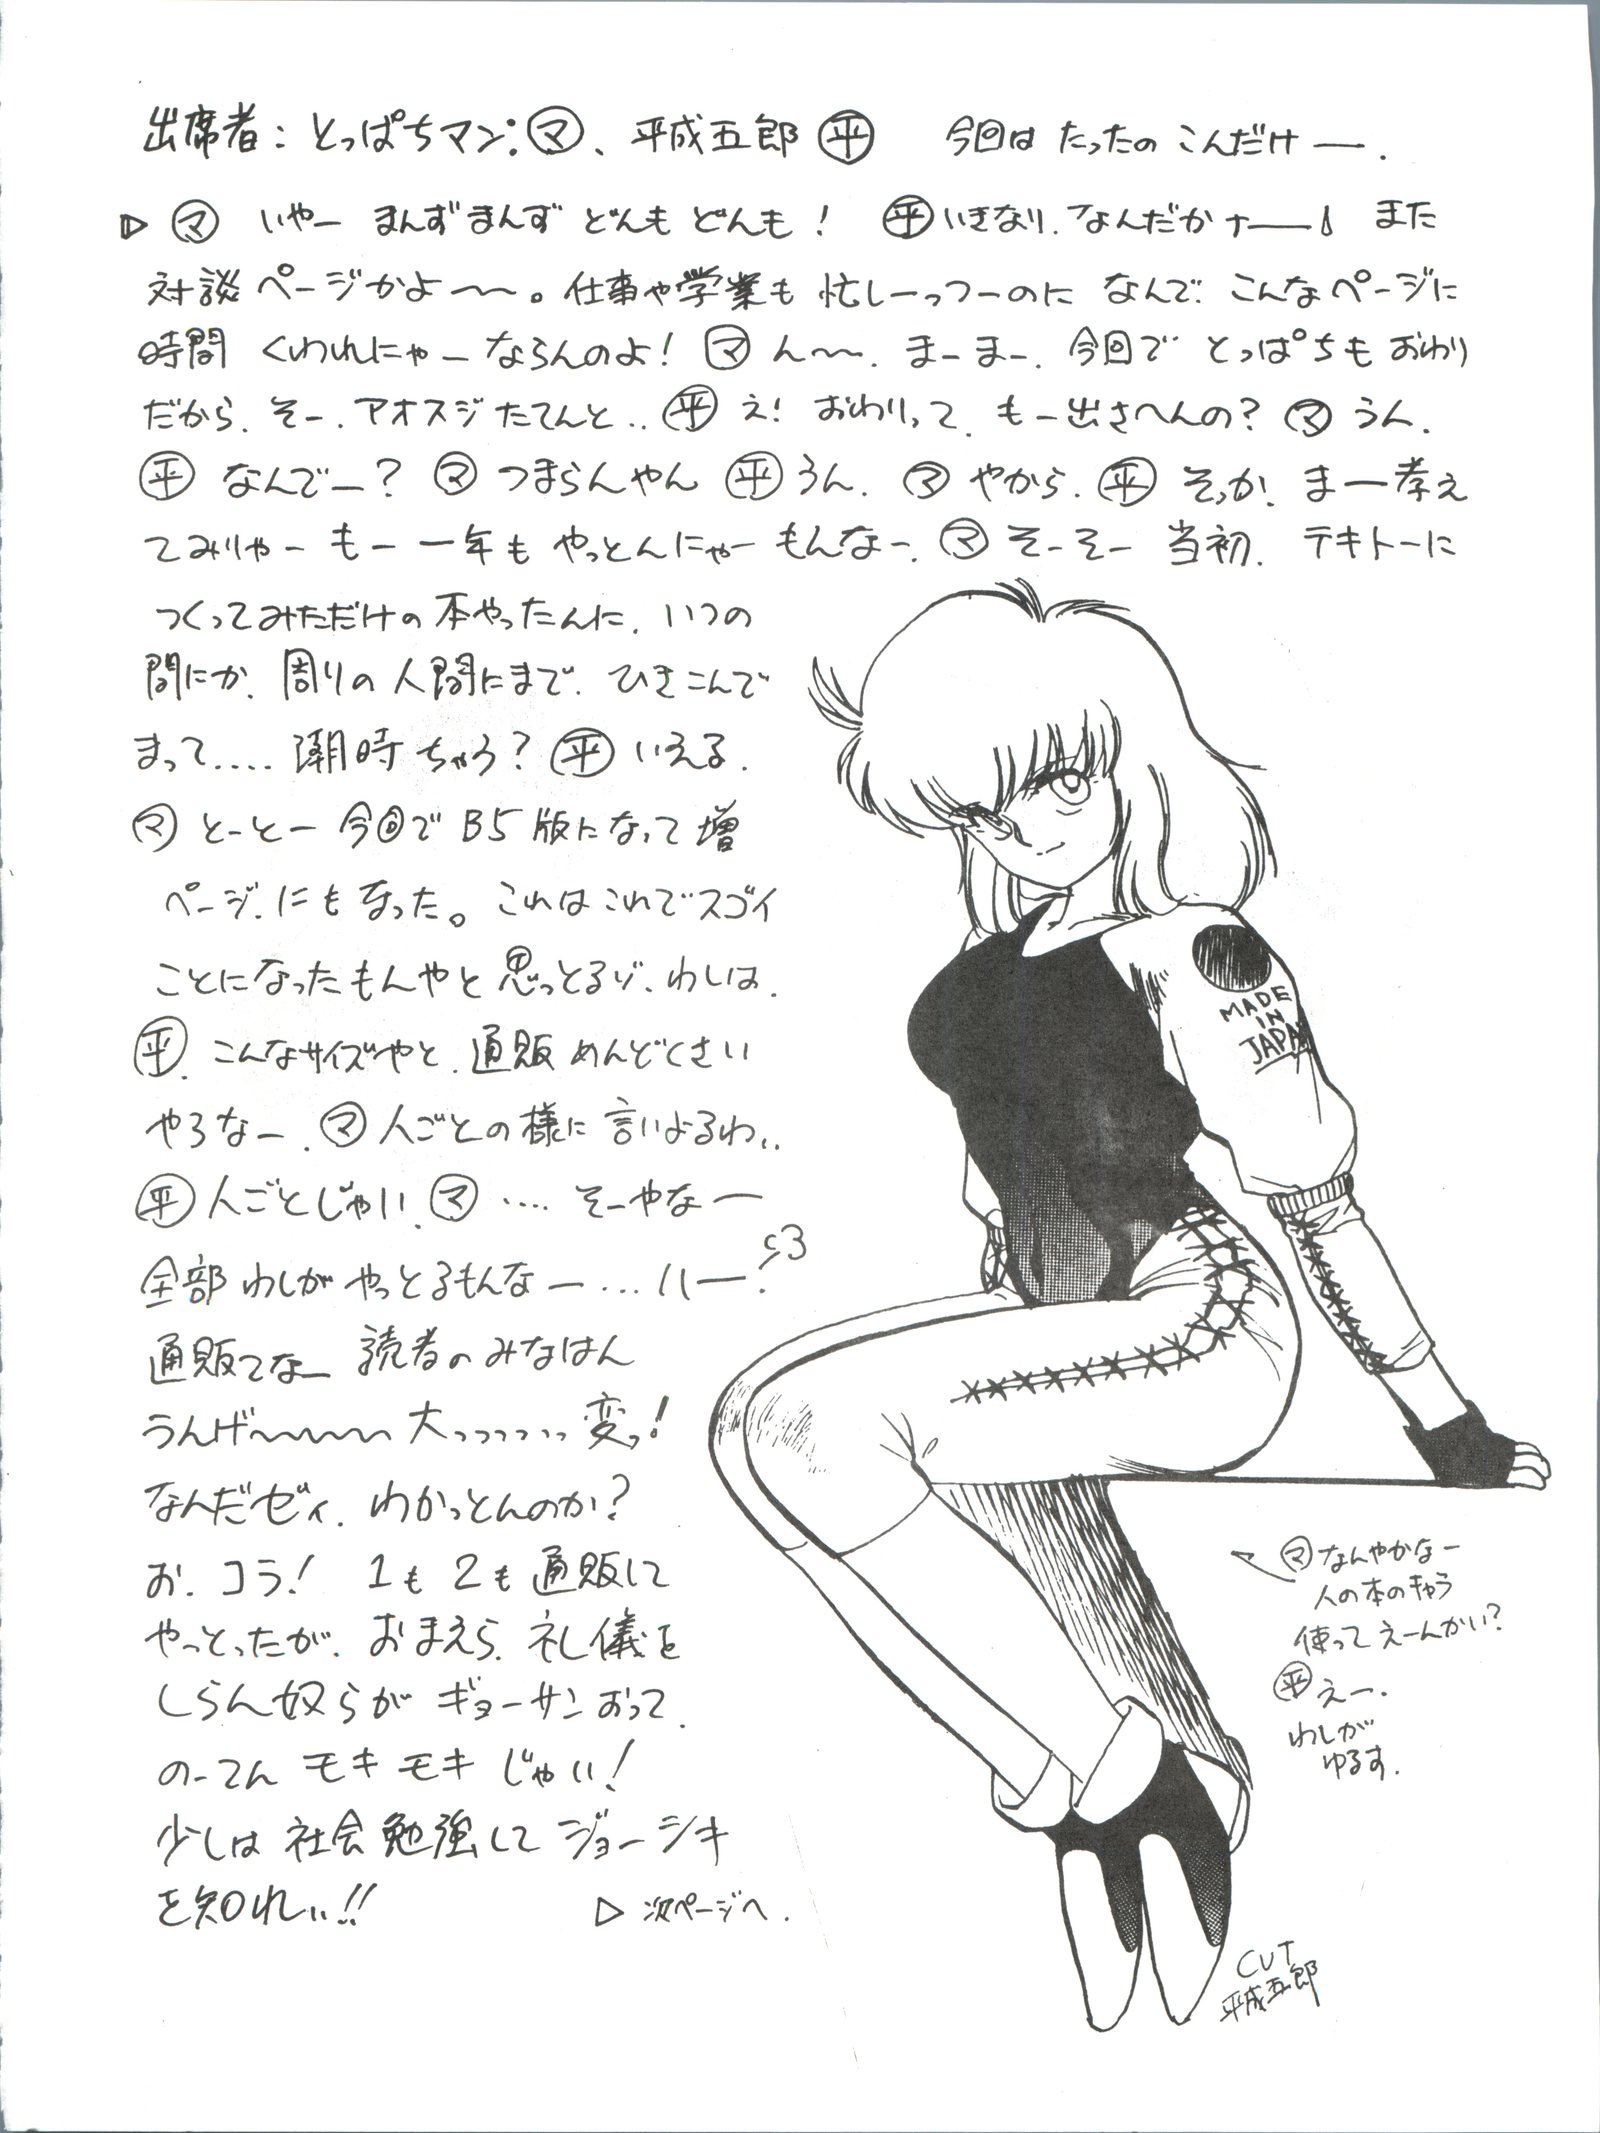 出席者：とっぱちマン.㋮、平成五郎㊥ 今回はたったのこんだけー.
▷㋮ いやー まんずまんず どんもどんも！ ㊥いきなり、なんだかナー また
対談ページかよ〜〜。仕事や学業も忙しーっつーのに なんで こんなページに
時間 くわれにゃーならんのよ！ ㋮ ん〜〜. まーまー. 今回で とっぱちも おわり
だから. そー. アオスジたてんと.. ㊥ え！ おわりって. もー出さへんの？ ㋮ うん.
㊥ なんでー？ ㋮ つまらんやん ㊥ うん. ㋮ やから. ㊥ そっか. まー考え
てみりゃー もー 一年も やっとんにゃー もんなー. ㋮ そーそー 当初. テキトーに
つくってみただけの本やったんに. いつの
間にか. 周りの人間にまで. ひきこんで
まって.... 潮時ちゃう？ ㊥ いえる.
㋮ とーとー 今回で B5版になって増
ページ.にもなった。これはこれでスゴイ
ことになったもんやと思っとるゾ. わしは.
㊥. こんなサイズやと. 通販 めんどくさい
やろなー. ㋮ 人ごとの様に言いよるわ..
㊥ 人ごとじゃい. ㋮ .... そーやなー
全部 わしが やっとるもんなー... ハー.
通販てなー 読者のみなはん
うんげ〜〜〜〜 大っっっっっ変っ！
なんだゼィ. わかっとんのか？
お. コラ！ 1も2も通販して
やっとったが. おまえら. 礼儀を
しらん奴らが ギョーサン おって.
のーてん モキモキ じゃい！
少しは 社会勉強して ジョーシキ
を知れぃ!!
▷ 次ページへ.
MADE
IN
JAPAN
㋮ なんやかなー
人の本のキャラ
使って えーんかい？
㊥ えー.
わしが
ゆるす.
CUT
平成五郎